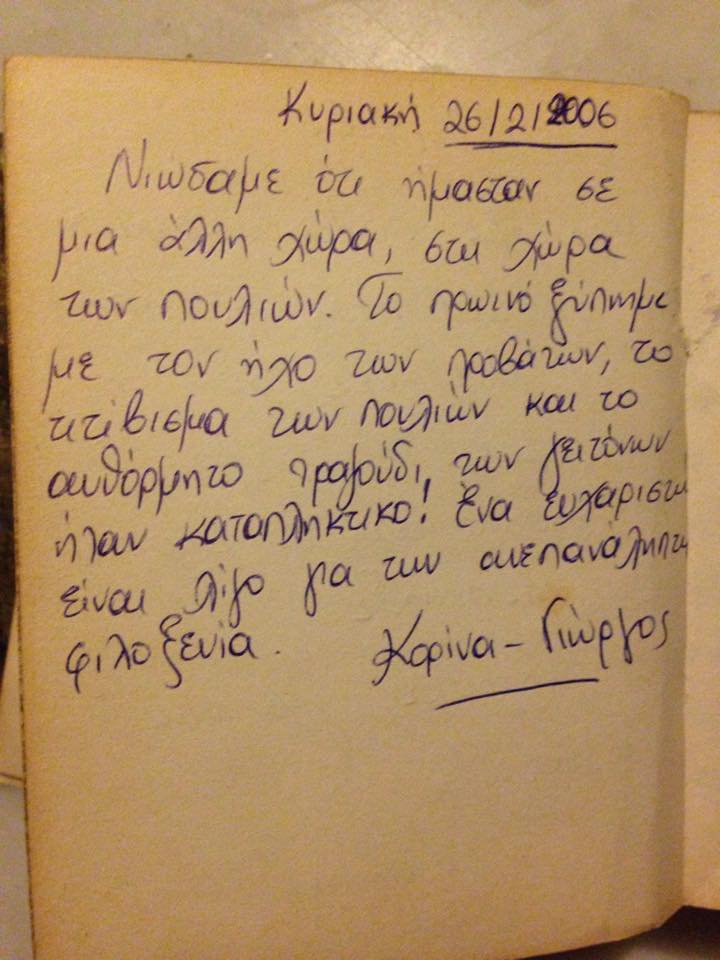 Κυριακή 26/2/2006
Νιώσαμε ότι ήμασταν σε
μια άλλη χώρα, στη χώρα
των πουλιών. Το πρωινό ξύπνημα
με τον ήχο των προβάτων, το
τιτίβισμα των πουλιών και το
αυθόρμητο τραγούδι των γειτόνων
ήταν καταπληκτικο! Ένα ευχαριστώ
είναι λίγο για την ανεπανάληπτη
φιλοξενία. Κορίνα - Γιώργος